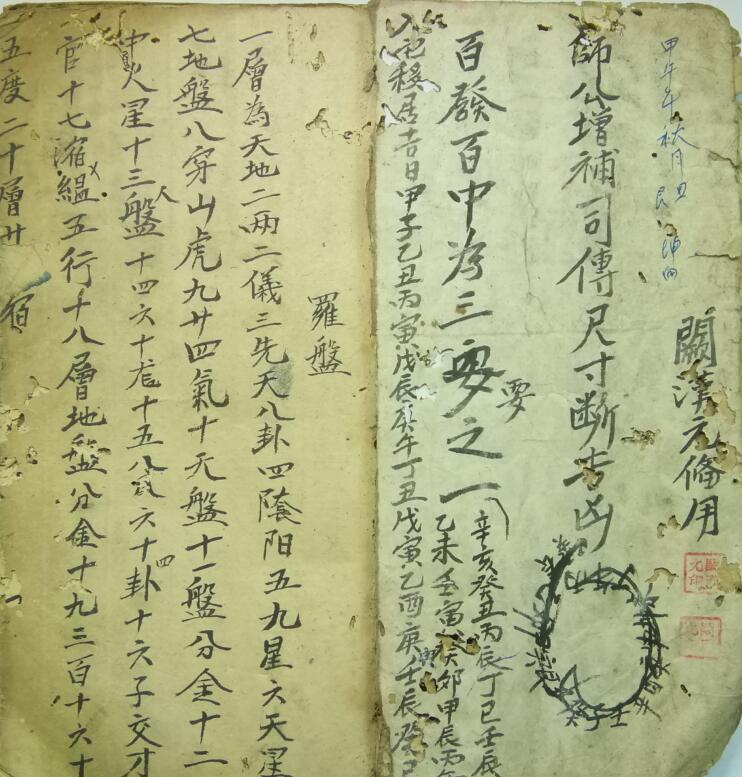 甲午年秋月
闕漢元備用
師公增補司傳尺寸断吉凶
百發百中為三要之一
要
辛亥癸丑丙辰丁巳壬辰
乙未壬寅癸卯甲辰丙午
入宅移居吉日甲子乙丑丙寅戊辰庚午丁丑戊寅乙酉庚寅壬辰癸巳
羅盤
一層為天地二两二儀三先天八卦四陰阳五九星六天星
七地盤八穿山虎九廿四氣十天盤十一盤分金十二
中火星十三人盤十四六十龙十五八六十四卦十六子交才
官十七縮緼五行十八層地盤分金十九三百十六十
五度二十層廿宿